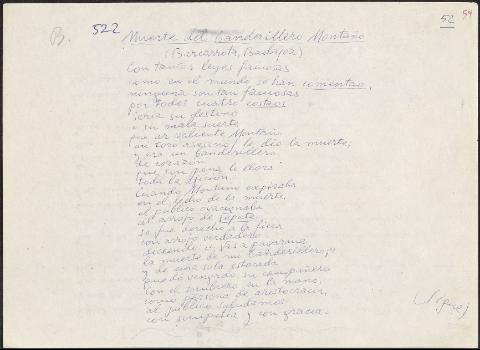 B. 522 52 54
Muerte del banderillero Montaño
(Barcarrota, Badajoz)
Con tantas leyes famosas
como en el mundo se han comentao,
ninguna son tan famosas
por todos cuatro costaos
sería su destino
o su mala suerte
que ar valiente Montaño
un toro asesino / le dio la muerte;
y era un banderillero
de corazón
que con pena le llora
toda la afición.
Cuando Montaño expiraba
en el lecho de la muerte,
el público ovacionaba
al arrojo de
se fue derecho a la fiera
con arrojo verdadero
diciendo: "Vas a pagarme
la muerte de mi banderillero;"
y de una sola estocada
quedó vengado su compañero
con el sombrero en la mano,
como persona de aristocracia,
al público saludamos
con simpatía y con gracia.
(Sigue)